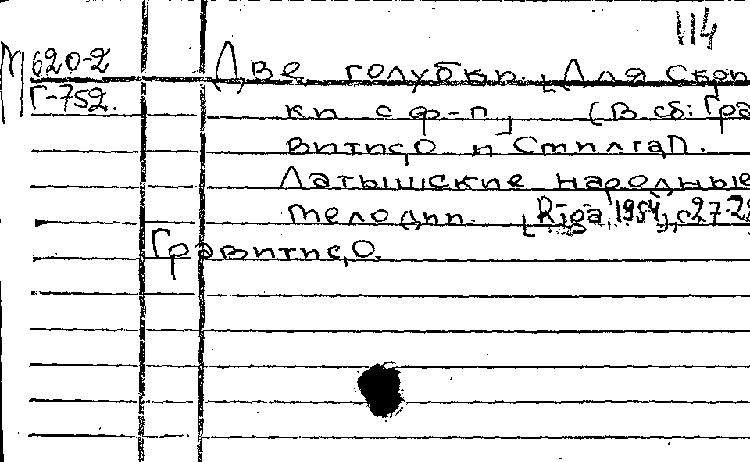 114
М 620-2
Г-752.
Две голубки. [Для скри
ки с ф-п.] (В сб: Гра
витис,О и Стилга,П.
Латышские народные
мелодии. [Rīga, 1954], с27-28
Гравитис,О.